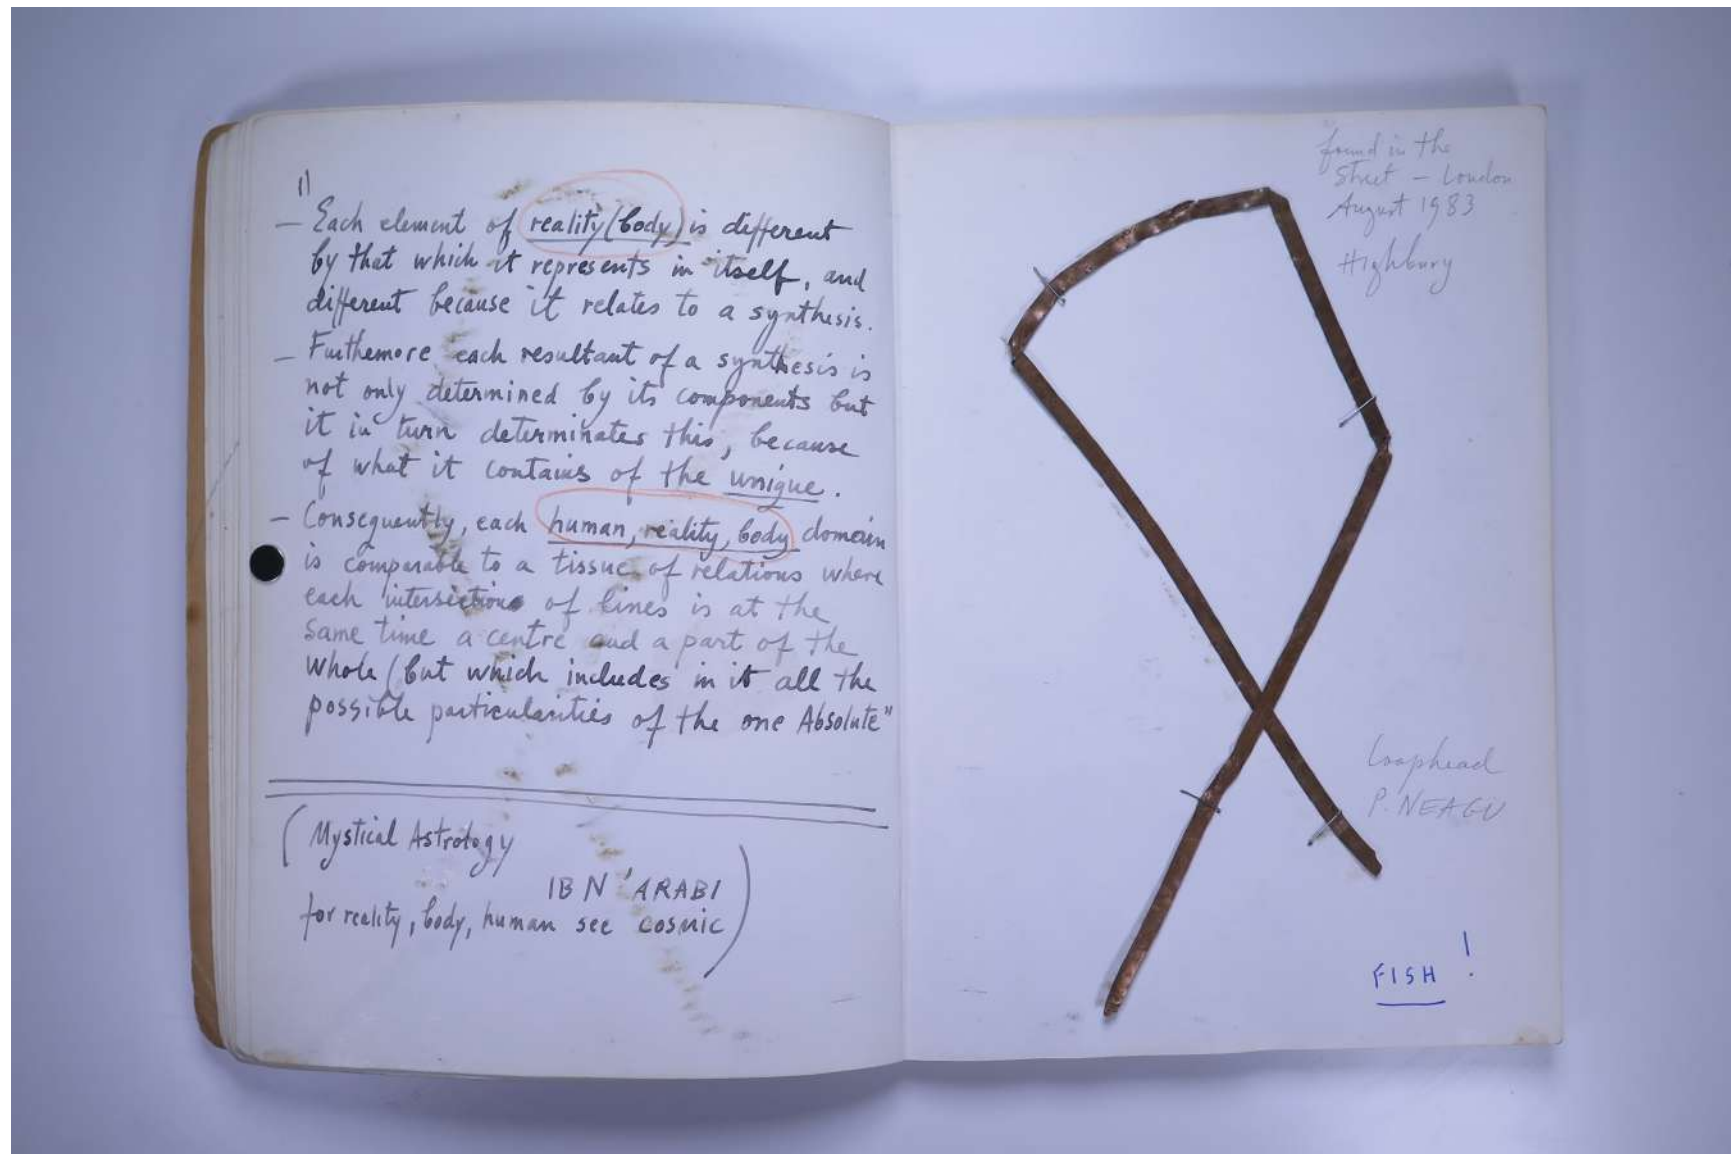 "
— Each element of reality (body) is different
by that which it represents in itself, and
different because it relates to a synthesis.
— Furthemore each resultant of a synthesis is
not only determined by its components but
it in turn determinates this, because
of what it contains of the unique.
— Consequently, each human, reality, body domain
is comparable to a tissue of relations where
each intersection of lines is at the
same time a centre and a part of the
whole (but which includes in it all the
possible particularities of the one Absolute"
(Mystical Astrology
IBN 'ARABI
for reality, body, human see cosmic)
found in the
Street – London
August 1983
Highbury
Loophead
P. NEAGU
FISH !